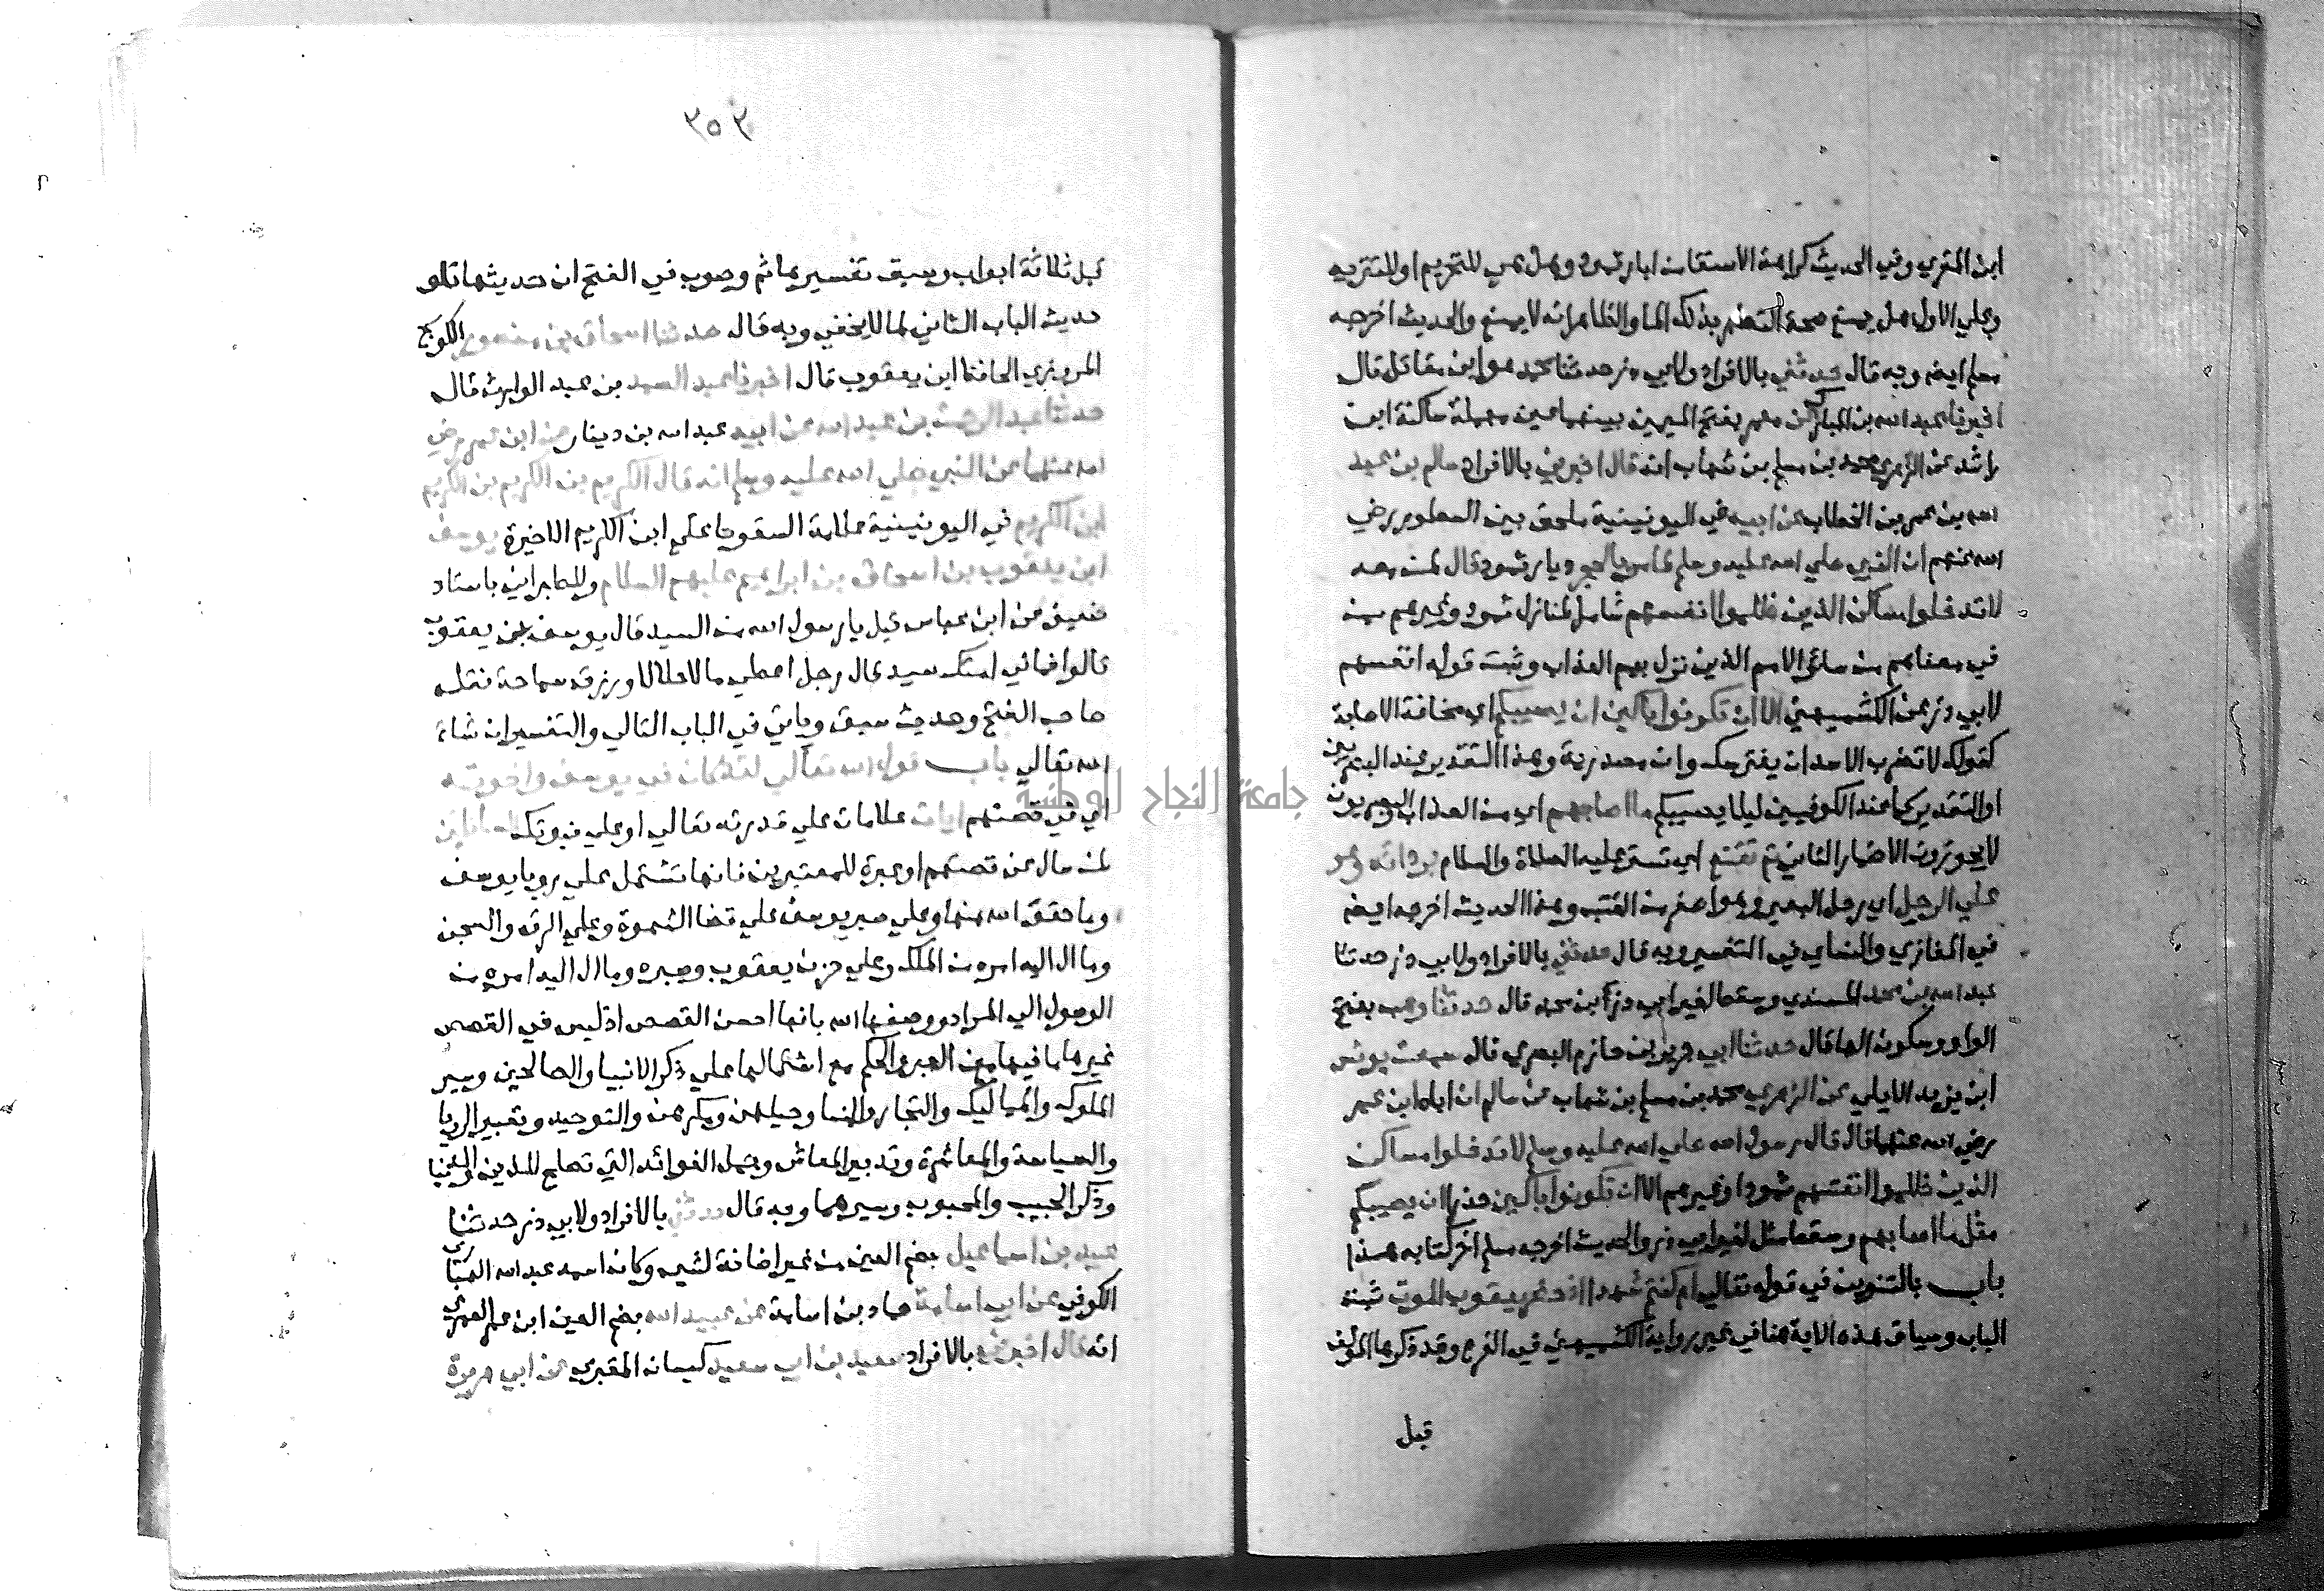 ابن المقري وفي الحديث كراهة الاستقاء من ابار ثمود وهل هي للتحريم او للتنزيه
وعلي الاول هل يمنع صحة التطهر بذلك الماء والظاهر انه لا يمنع والحديث اخرجه
مسلم ايضا وبه قال حدثني بالافراد ولابي ذر حدثنا محمد هو ابن مقاتل قال
اخبرنا عبد الله بن المبارك عن معمر بفتح الميمين بينهما عين مهملة ساكنة ابن
راشد عن الزهري محمد بن مسلم بن شهاب انه قال اخبرني بالافراد سالم بن عبد
الله بن عمر بن الخطاب عن ابيه في اليونينية ملحق بين السطور رضي
الله عنهم ان النبي صلي الله عليه وسلم لما مر بالحجر ديار ثمود قال لمن معه
لا تدخلوا مساكن الذين ظلموا انفسهم شامل لمنازل ثمود وغيرهم من
في معناهم من سائر الامم الذين نزل بهم العذاب وثبت قوله انفسهم
لابي ذر عن الكشميهني الا ان تكونوا باكين ان يصيبكم اي مخافة الاصابة
كقولك لا تقرب الاسد ان يفترسك وان مصدرية وهذا التقدير عند البصريين
او التقدير كما عند الكوفيين ليلا يصيبكم ما اصابهم اي من العذاب والبصريون
لا يجوزون الاضمار الثاني ثم تقنع اي تستر عليه الصلاة والسلام بردائه وهو
علي الرحل اي رحل البعير وهو اصغر من القتب وهذا الحديث اخرجه ايضا
في المغازي والنساي في التفسير وبه قال حدثني بالافراد ولابي ذر حدثنا
عبد الله بن محمد المسندي وسقط لغير ابي ذر ابن محمد قال حدثنا وهب بفتح
الواو وسكون الها قال حدثنا ابي جرير بن حازم البصري قال سمعت يونس
ابن يزيد الايلي عن الزهري محمد بن مسلم بن شهاب عن سالم ان اباه ابن عمر
رضي الله عنهما قال قال رسول الله صلي الله عليه وسلم لا تدخلوا مساكن
الذين ظلموا انفسهم ثمود او غيرهم الا ان تكونوا باكين حذرا ان يصيبكم
مثل ما اصابهم وسقط مثل لغير ابي ذر والحديث اخرجه مسلم اخر كتابه هذا
باب بالتنوين في قوله تعالي ام كنتم شهدا اذ حضر يعقوب الموت ثبت
الباب وسياق هذه الاية هنا في غير رواية الكشميهني في الفرع وقد ذكرها المؤلف
قبل
٣٥٣
قبل ثلاثة ابواب وسبق تفسيرها ثم وصوب في الفتح ان حديثها تلو
حديث الباب الثاني لما لا يخفي وبه قال حدثنا اسحاق بن منصور الكوسج
المروزي الحافظ ابن يعقوب قال اخبرنا عبد الصمد بن عبد الوارث قال
حدثنا عبد الرحمن بن عبد الله عن ابيه عبد الله بن دينار عن ابن عمر رضي
الله عنهما عن النبي صلي الله عليه وسلم انه قال الكريم بن الكريم بن الكريم
ابن الكريم في اليونينية علامة السقوط علي ابن الكريم الاخيرة يوسف
ابن يعقوب بن اسحاق بن ابراهيم عليهم السلام وللطبراني باسناد
ضعيف عن ابن عباس قيل يا رسول الله من السيد قال يوسف بن يعقوب
قالوا فما في امتك سيد قال رجل اعطي مالا حلالا ورزق سماحة نقله
صاحب الفتح وحديث سبق وياتي في الباب التالي والتفسير ان شاء
الله تعالي باب قول الله تعالي لقد كان في يوسف واخوته
اي في قصتهم ايات علامات علي قدرته تعالي او علي نبوتك للسائلين
لمن سال عن قصتهم او عبرة للمعتبرين فانها تشتمل علي رويا يوسف
وما حقق الله منها وعلي صبر يوسف علي قضا الشهوة وعلي الرق والسجن
وما ال اليه امره من الملك وعلي حزن يعقوب وصبره وما ال اليه امره من
الوصول الي المراد ووصفها الله بانها احسن القصص اذ ليس في القصص
غيرها ما فيها من العبر والحكم مع اشتمالها علي ذكر الانبيا والصالحين وسير
الملوك والمماليك والتجار والنسا وحيلهن ومكرهن والتوحيد وتعبير الرويا
والسياسة والمعاشرة وتدبير المعاش وجمل الفوائد التي تصلح للدين والدنيا
وذكر الحبيب والمحبوب وسيرهما وبه قال حدثني بالافراد ولابي ذر حدثنا
عبيد بن اسماعيل بضم العين من غير اضافة لشي وكان اسمه عبد الله الهباري
الكوفي عن ابي اسامة حماد بن اسامة عن عبيد الله بضم العين ابن عمر العمري
انه قال اخبرني بالافراد سعيد بن ابي سعيد كيسان المقبري عن ابي هريرة
جامعة النجاح الوطنية